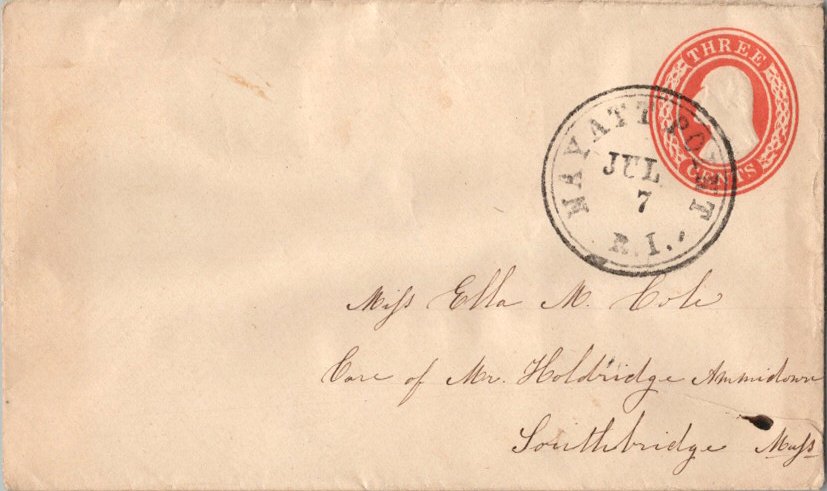 THREE
CENTS
NAYATT POINT
JUL
7
R.I.
Miss Ella M. Cole
Care of Mr. Holdridge Ammidown
Southbridge Mass